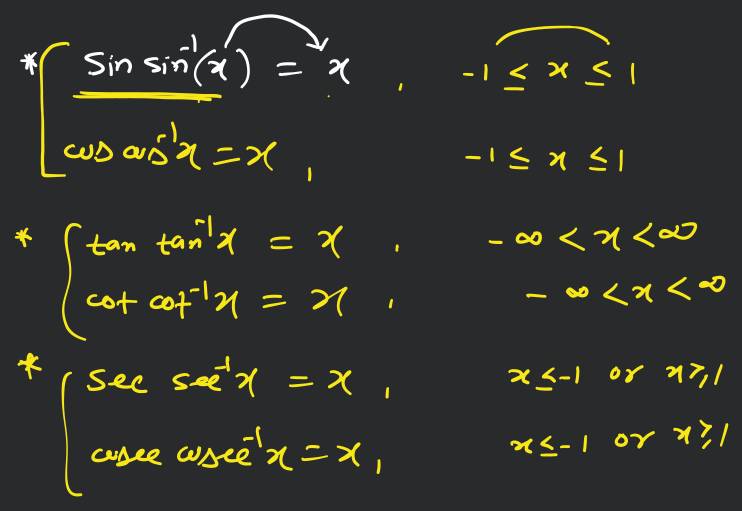 * sin sin⁻¹(x) = x , -1 ≤ x ≤ 1
cos cos⁻¹x = x , -1 ≤ x ≤ 1
* tan tan⁻¹x = x , -∞ < x < ∞
cot cot⁻¹x = x , -∞ < x < ∞
* sec sec⁻¹x = x , x ≤ -1 or x ≥ 1
cosec cosec⁻¹x = x , x ≤ -1 or x ≥ 1